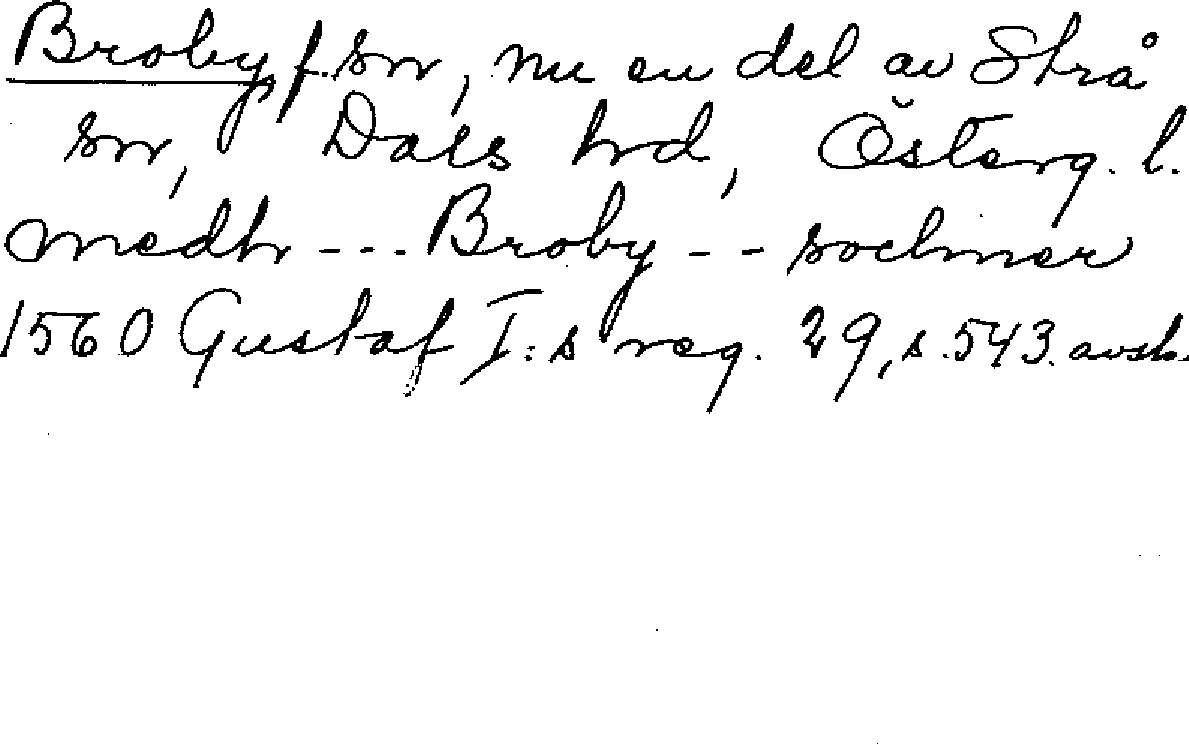 Broby, f. sn, nu en del av Strå
sn, Dals hd, Österg. l.
medh --- Broby -- sochner
1560 Gustaf I:s reg. 29, s. 543. avskr.